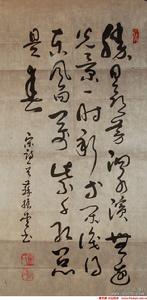 勝日尋芳泗水濱無邊
光景一時新等閒識得
東風面萬紫千紅總
是春
宋詩一首